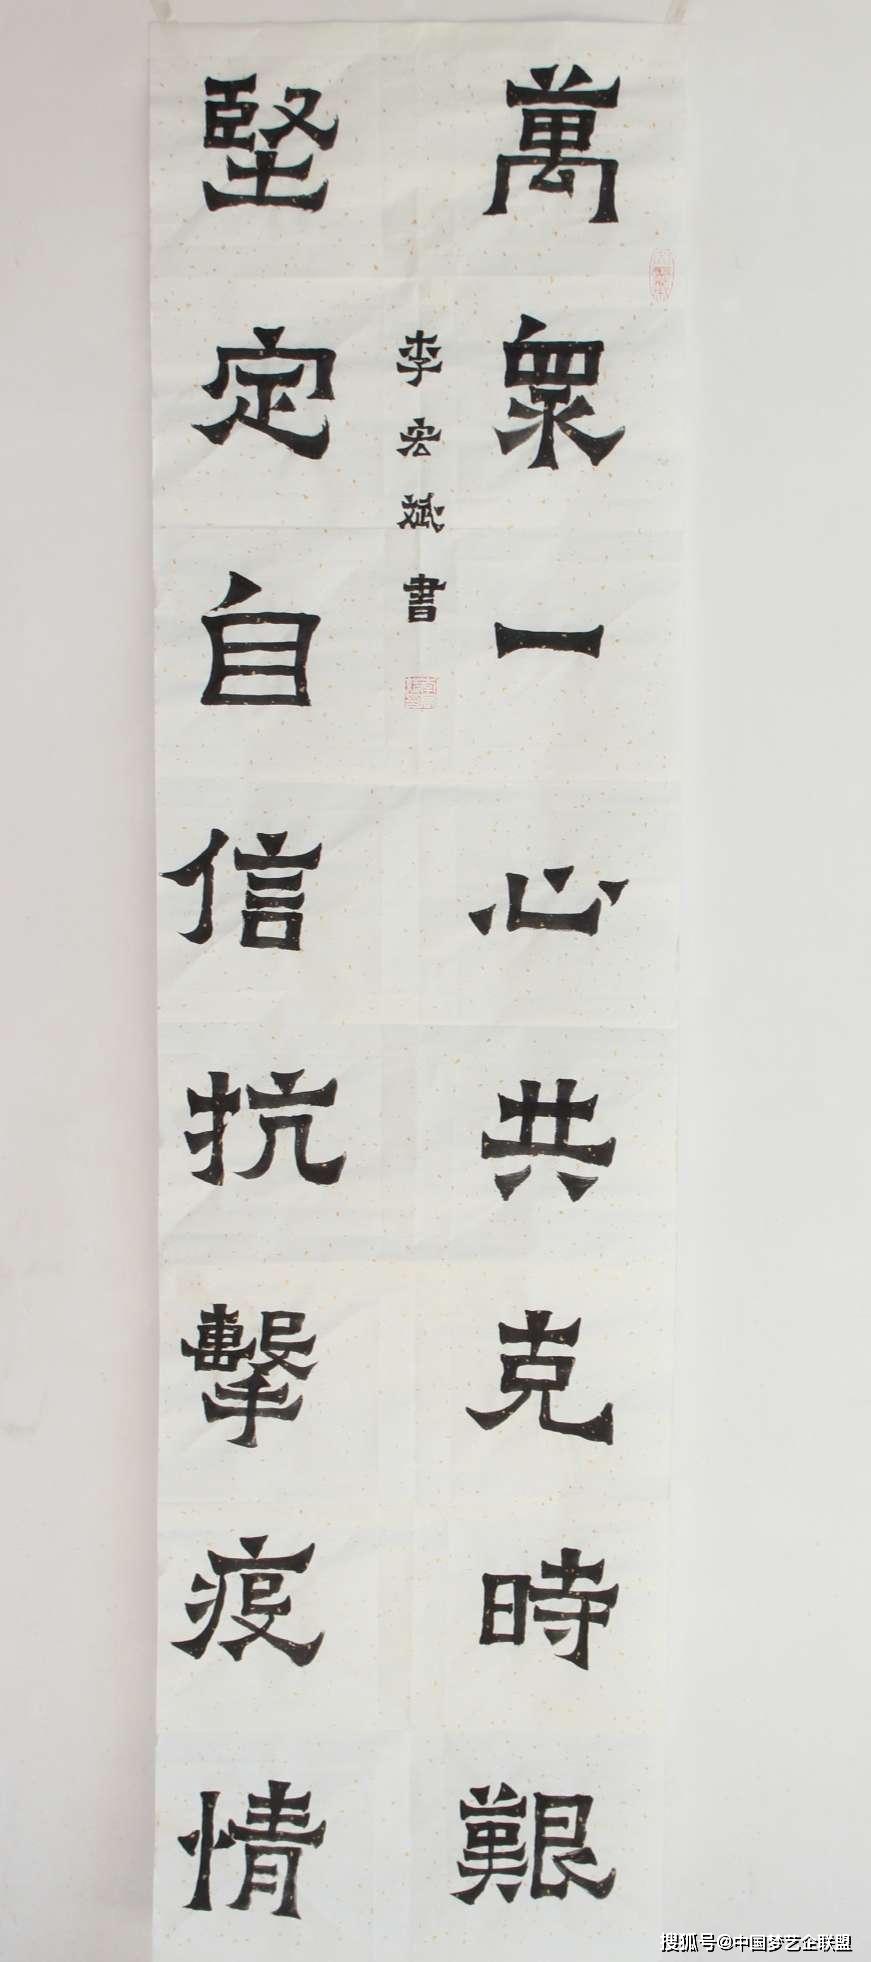 萬眾一心共克時艱
堅定自信抗擊疫情
李宏斌書
搜狐号@中国梦艺企联盟